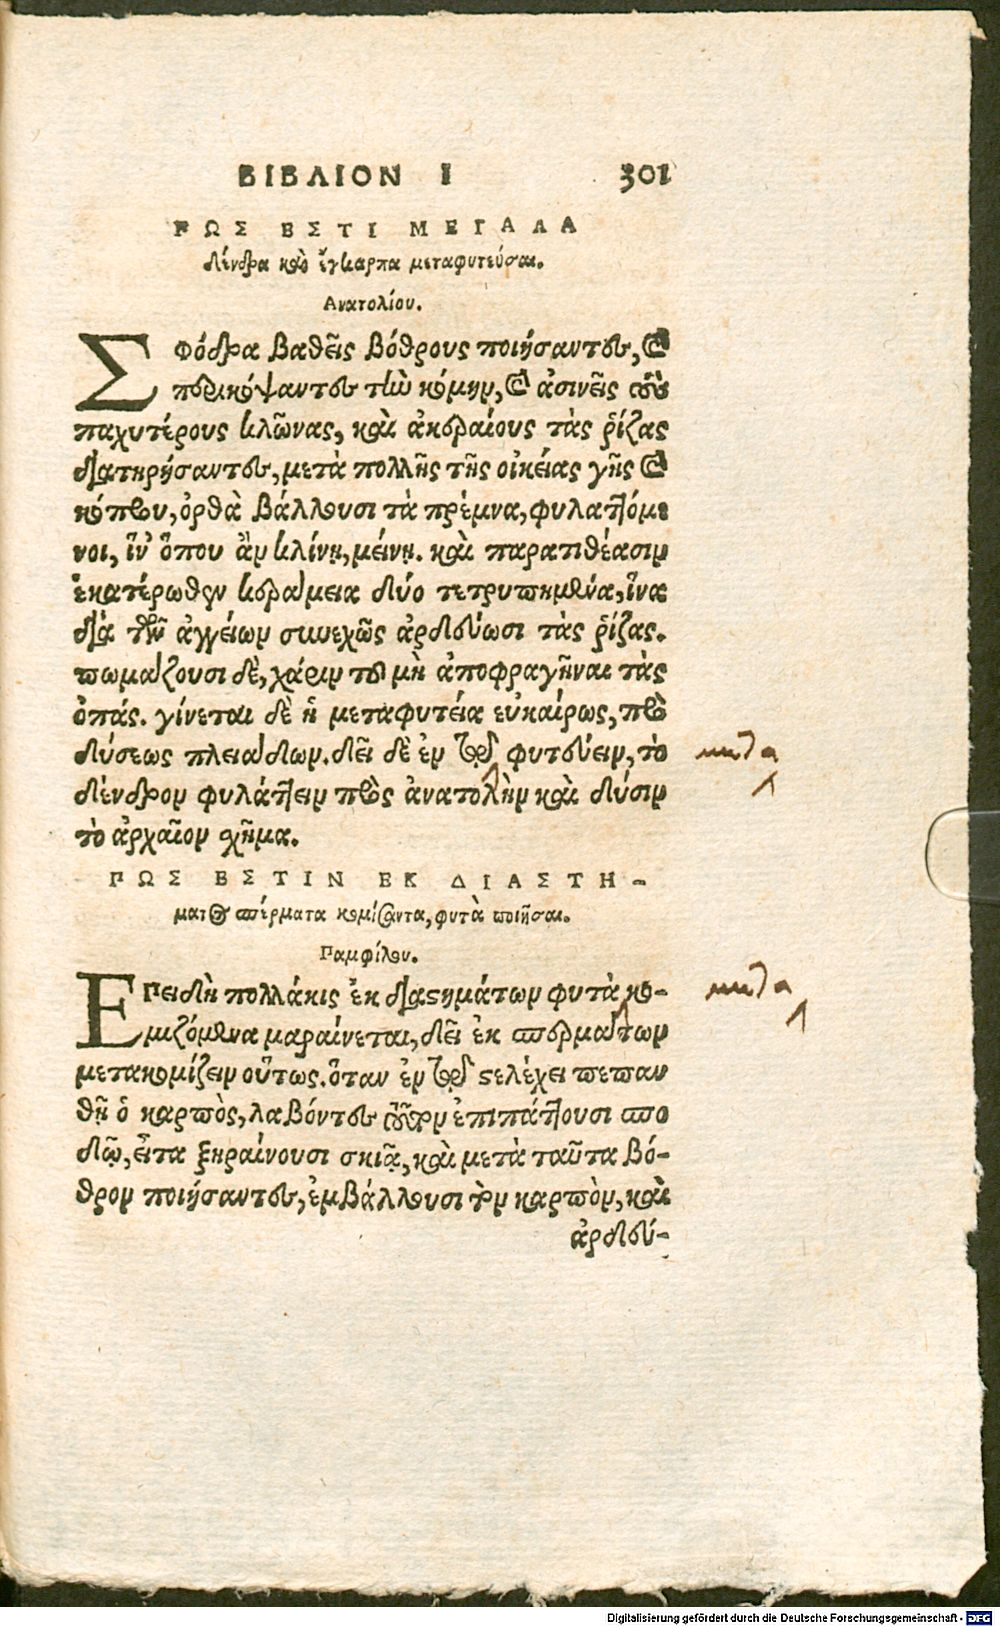 ΒΙΒΛΙΟΝ Ι 301
ΠΩΣ ΕΣΤΙ ΜΕΓΑΛΑ
δένδρα καὶ ἔγκαρπα μεταφυτεύσαι.
Ανατολίου.
ΣΦόδρα βαθεῖς βόθρους ποιήσαντες, καὶ
περικόψαντες τὴν κόμην, καὶ ἀσινεῖς τοὺς
παχυτέρους κλῶνας, καὶ ἀκεραίους τὰς ῥίζας
διατηρήσαντες, μετὰ πολλῆς τῆς οἰκείας γῆς καὶ
κόπρου, ὀρθὰ βάλλουσι τὰ πρέμνα, φυλαττόμε
νοι, ἵν' ὅπου ἂν κλίνῃ, μείνῃ. καὶ παρατιθέασιν
ἑκατέρωθεν κεράμεια δύο τετρυπημένα, ἵνα
διὰ τῶν ἀγγείων συνεχῶς ἀρδεύωσι τὰς ῥίζας.
πωμάζουσι δὲ, χάριν τοῦ μὴ ἀποφραγῆναι τὰς
ὀπάς. γίνεται δὲ ἡ μεταφυτεία εὐκαίρως, πρὸ
δύσεως πλειάδων. δεῖ δὲ ἐν τῷ φυτεύειν, τὸ
δένδρον φυλάττειν πρὸς ἀνατολὴν καὶ δύσιν
τὸ ἀρχαῖον σχῆμα.
ΠΩΣ ΕΣΤΙΝ ΕΚ ΔΙΑΣΤΗ-
ματος σπέρματα κομίσαντα, φυτὰ ποιῆσαι.
Παμφίλου.
ΕΠειδὴ πολλάκις ἐκ διαστημάτων φυτὰ κο-
μιζόμενα μαραίνεται, δεῖ ἐκ σπερμάτων
μετακομίζειν οὕτως. ὅταν ἐν τῷ στελέχει πεπαν
θῇ ὁ καρπὸς, λαβόντες ἐπιπάττουσι σπο
δῷ, εἶτα ξηραίνουσι σκιᾷ, καὶ μετὰ ταῦτα βό-
θρον ποιήσαντες, ἐμβάλλουσι τὸν καρπὸν, καὶ
ἀρδεύ-
Digitalisierung gefördert durch die Deutsche Forschungsgemeinschaft - DFG